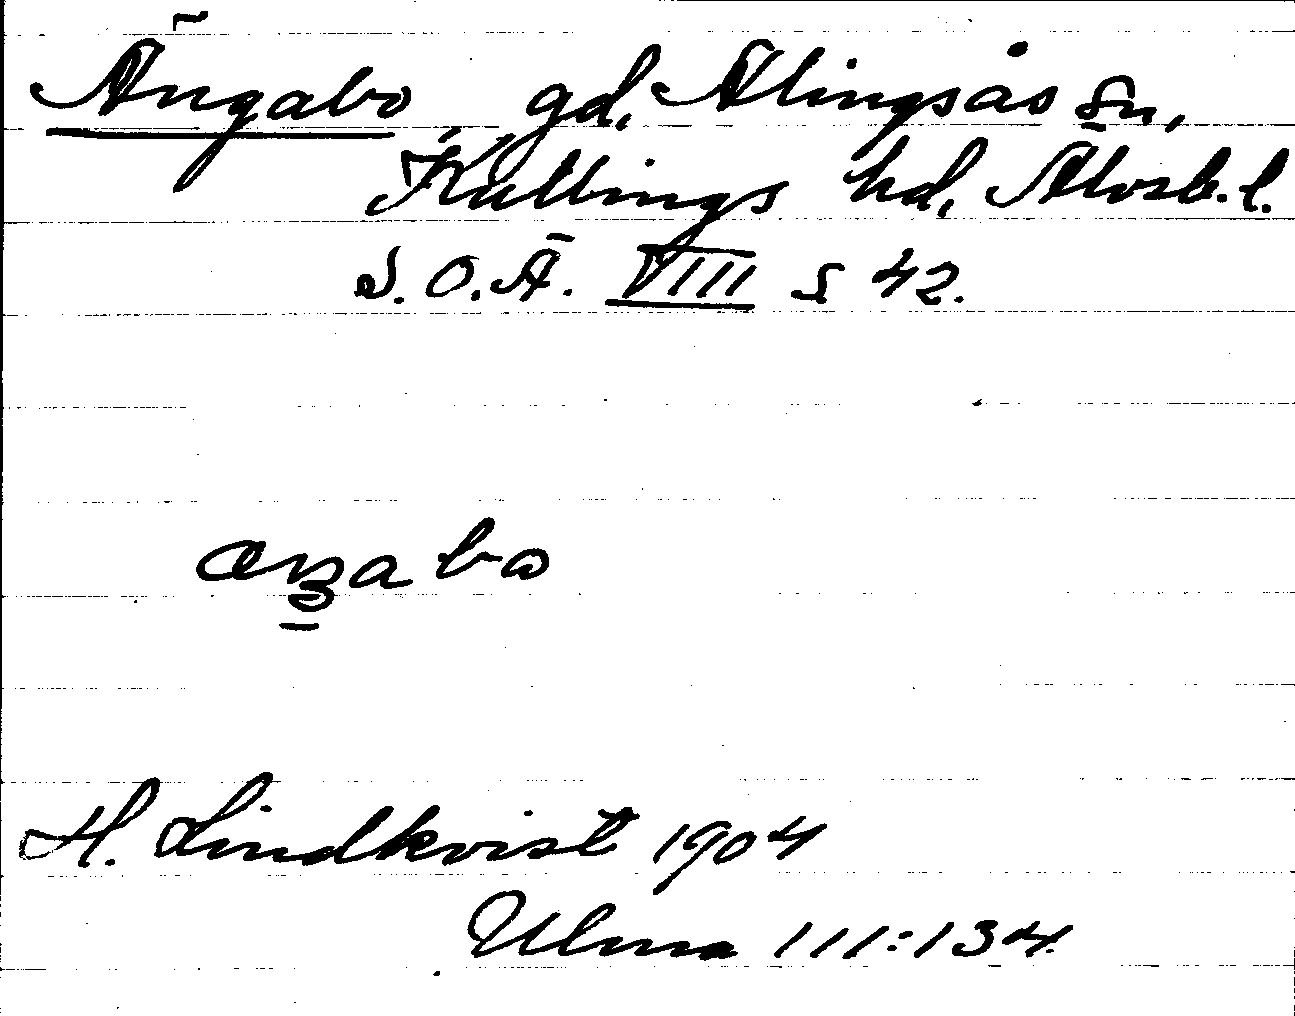 Ängabo, gd, Alingsås sn,
Kullings hd, Älvsb. l.
S. O. Ä. VIII s 42.
H. Lindkvist 1904
Ulma 111:134.